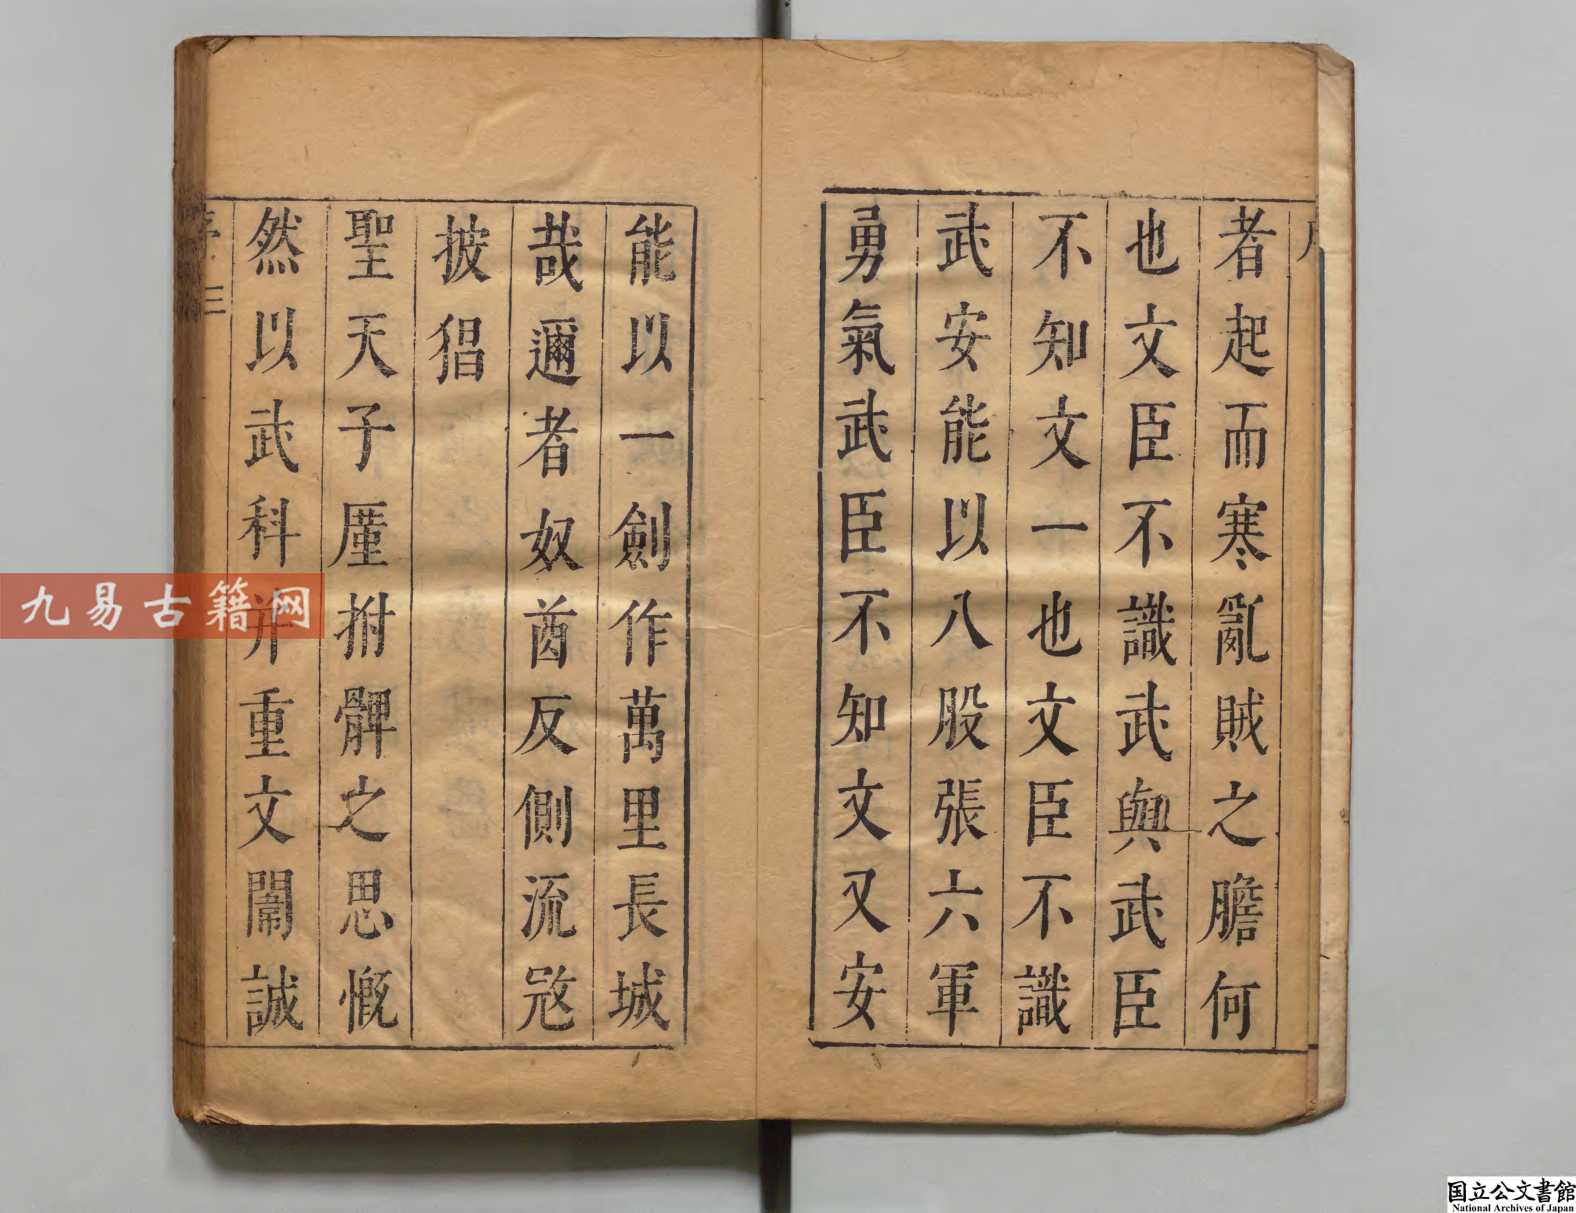 者起而寒亂賊之膽何
也文臣不識武與武臣
不知文一也文臣不識
武安能以八股張六軍
勇氣武臣不知文又安
能以一劍作萬里長城
哉邇者奴酋反側流𡨥
披猖
聖天子厪拊髀之思慨
然以武科并重文闈誠
序 三
九易古籍网
国立公文書館
National Archives of Japan